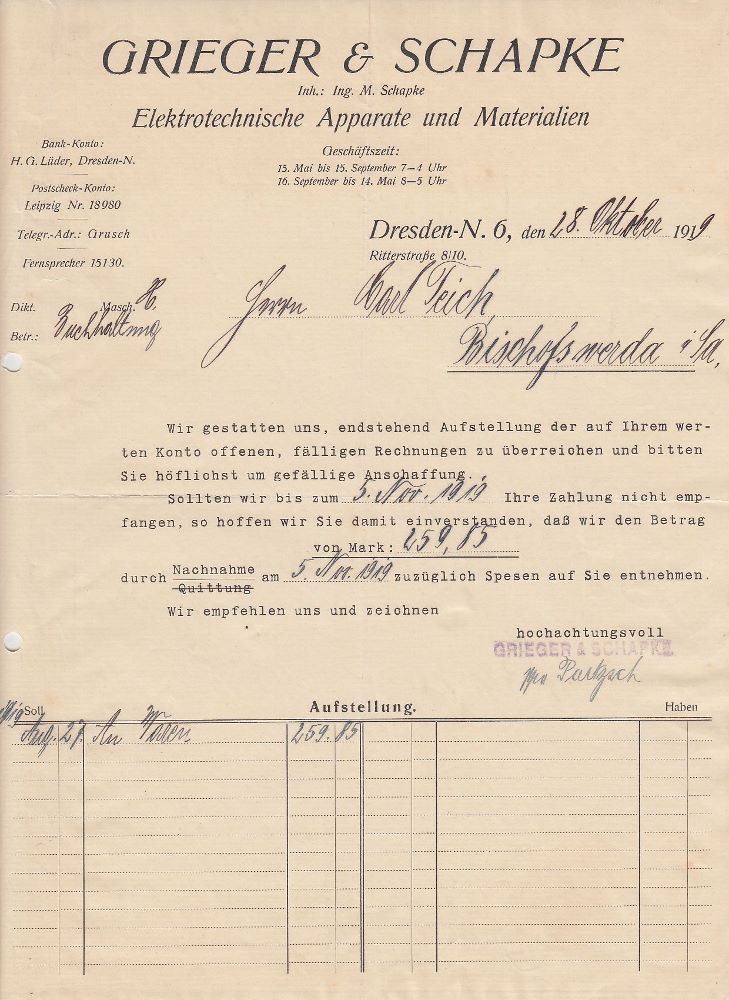 GRIEGER & SCHAPKE
Inh.: Ing. M. Schapke
Elektrotechnische Apparate und Materialien
Bank-Konto:
H. G. Lüder, Dresden-N.
Postscheck-Konto:
Leipzig Nr. 18980
Telegr.-Adr.: Grusch
Fernsprecher 15130.
Geschäftszeit:
15. Mai bis 15. September 7—4 Uhr
16. September bis 14. Mai 8—5 Uhr
Dresden-N. 6, den 28. Oktober 1919
Ritterstraße 8/10.
Dikt. Masch. H.
Betr.: Buchhaltung
Herrn Carl Teich,
Bischofswerda i/Sa,
Wir gestatten uns, endstehend Aufstellung der auf Ihrem wer-
ten Konto offenen, fälligen Rechnungen zu überreichen und bitten
Sie höflichst um gefällige Anschaffung.
Sollten wir bis zum 5. Nov. 1919 Ihre Zahlung nicht emp-
fangen, so hoffen wir Sie damit einverstanden, daß wir den Betrag
von Mark: 259,85
durch Nachnahme
Quittung
am 5. Nov. 1919 zuzüglich Spesen auf Sie entnehmen.
Wir empfehlen uns und zeichnen
hochachtungsvoll
GRIEGER & SCHAPKE
ppa Partzsch
1919 Soll Aufstellung. Haben
Aug. 27. An Waren 259.85